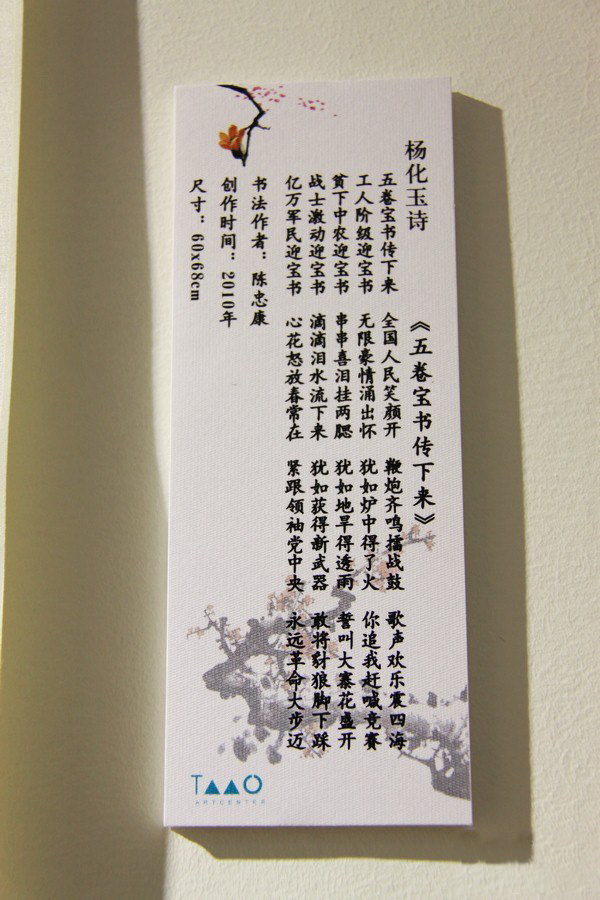 杨化玉诗 《五卷宝书传下来》
五卷宝书传下来 全国人民笑颜开 鞭炮齐鸣擂战鼓 歌声欢乐震四海
工人阶级迎宝书 无限豪情涌出怀 犹如炉中得了火 你追我赶喊竞赛
贫下中农迎宝书 串串喜泪挂两腮 犹如地旱得透雨 誓叫大寨花盛开
战士激动迎宝书 滴滴泪水流下来 犹如获得新武器 敢将豺狼脚下踩
亿万军民迎宝书 心花怒放春常在 紧跟领袖党中央 永远革命大步迈
书法作者：陈忠康
创作时间：2010年
尺寸：60x68cm
TAAO
ARTCENTER